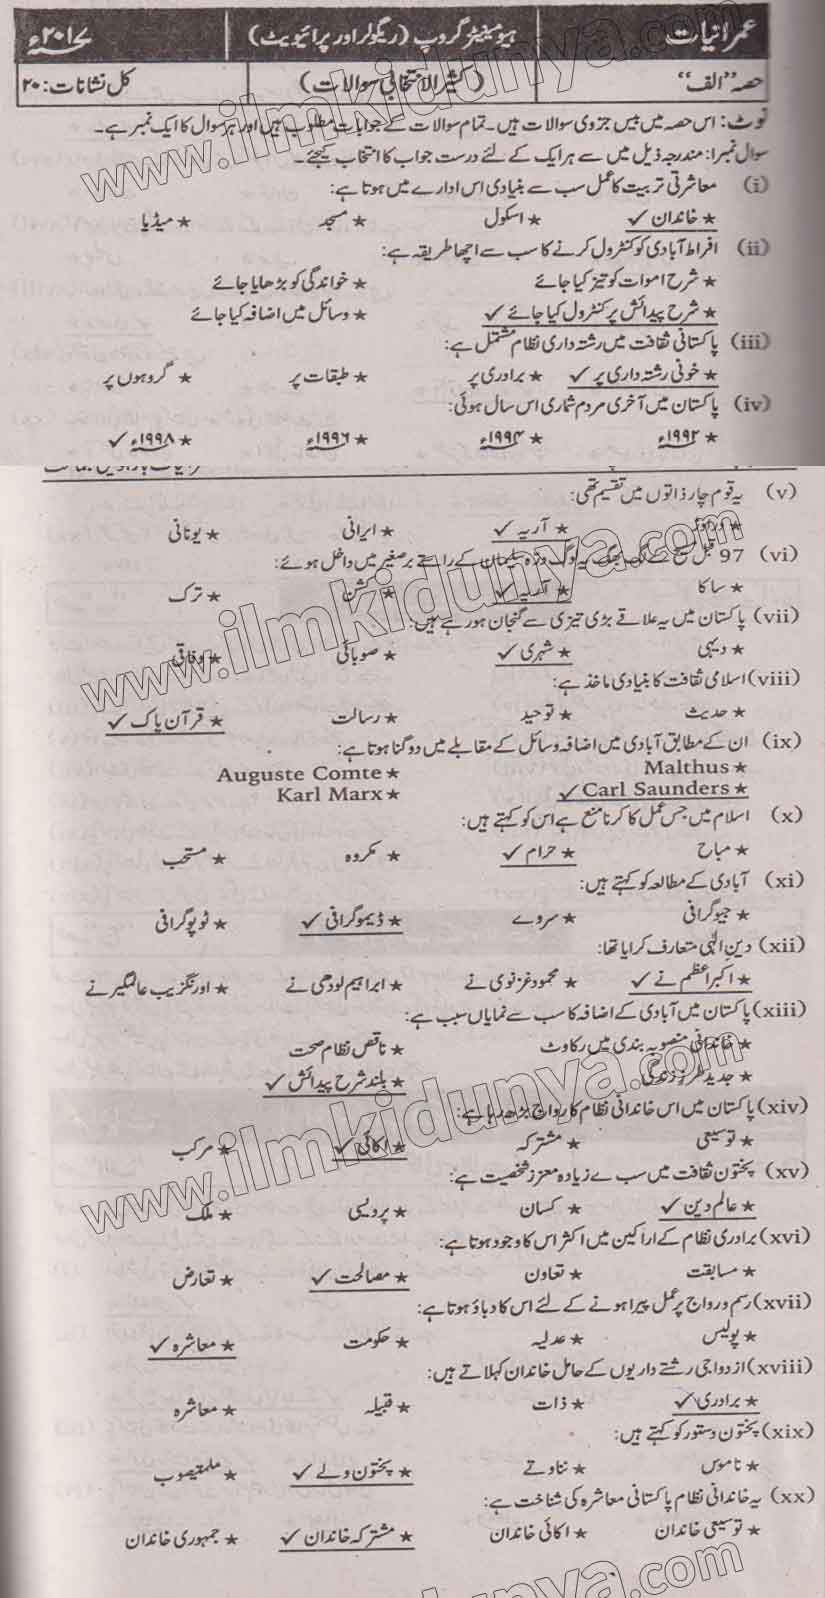 عمرانیات ہیومینٹیز گروپ (ریگولر اور پرائیویٹ) ۲۰۱۷ء
حصہ "الف" (کثیر الانتخابی سوالات) کل نشانات: ۲۰
نوٹ: اس حصہ میں بیس جزوی سوالات ہیں۔ تمام سوالات کے جوابات مطلوب ہیں اور ہر سوال کا ایک نمبر ہے۔
سوال نمبر۱: مندرجہ ذیل میں سے ہر ایک کے لئے درست جواب کا انتخاب کیجئے۔
(i) معاشرتی تربیت کا عمل سب سے بنیادی اس ادارے میں ہوتا ہے:
★ خاندان ✓ ★ اسکول ★ مسجد ★ میڈیا
(ii) افراط آبادی کو کنٹرول کرنے کا سب سے اچھا طریقہ ہے:
★ شرح اموات کو تیز کیا جائے ★ خواندگی کو بڑھایا جائے
★ شرح پیدائش پر کنٹرول کیا جائے ✓ ★ وسائل میں اضافہ کیا جائے
(iii) پاکستانی ثقافت میں رشتہ داری نظام مشتمل ہے:
★ خونی رشتہ داری پر ✓ ★ برادری پر ★ طبقات پر ★ گروہوں پر
(iv) پاکستان میں آخری مردم شماری اس سال ہوئی:
★ ۱۹۹۲ء ★ ۱۹۹۴ء ★ ۱۹۹۶ء ★ ۱۹۹۸ء ✓
(v) یہ قوم چار ذاتوں میں تقسیم تھی:
★ دراوڑ ★ آریہ ✓ ★ ایرانی ★ یونانی
(vi) 97 قبل مسیح کے لگ بھگ یہ لوگ درّہ سلیمان کے راستے برصغیر میں داخل ہوئے:
★ ساکا ★ آریہ ✓ ★ کشن ★ ترک
(vii) پاکستان میں یہ علاقے بڑی تیزی سے گنجان ہو رہے ہیں:
★ دیہی ★ شہری ✓ ★ صوبائی ★ وفاقی
(viii) اسلامی ثقافت کا بنیادی ماخذ ہے:
★ حدیث ★ توحید ★ رسالت ★ قرآن پاک ✓
(ix) ان کے مطابق آبادی میں اضافہ وسائل کے مقابلے میں دوگنا ہوتا ہے:
★ Malthus ★ Auguste Comte
★ Carl Saunders ✓ ★ Karl Marx
(x) اسلام میں جس عمل کا کرنا منع ہے اس کو کہتے ہیں:
★ مباح ★ حرام ✓ ★ مکروہ ★ مستحب
(xi) آبادی کے مطالعہ کو کہتے ہیں:
★ جیوگرافی ★ سروے ★ ڈیموگرافی ✓ ★ ٹوپوگرافی
(xii) دینِ الٰہی متعارف کرایا تھا:
★ اکبر اعظم نے ✓ ★ محمود غزنوی نے ★ ابراہیم لودھی نے ★ اورنگزیب عالمگیر نے
(xiii) پاکستان میں آبادی کے اضافہ کا سب سے نمایاں سبب ہے:
★ خاندانی منصوبہ بندی میں رکاوٹ ★ ناقص نظام صحت
★ جدید طرز زندگی ★ بلند شرح پیدائش ✓
(xiv) پاکستان میں اس خاندانی نظام کا رواج بڑھ رہا ہے:
★ توسیعی ★ مشترکہ ★ اکائی ✓ ★ مرکب
(xv) پختون ثقافت میں سب سے زیادہ معزز شخصیت ہے:
★ عالم دین ✓ ★ کسان ★ پردیسی ★ ملک
(xvi) برادری نظام کے اراکین میں اکثر اس کا وجود ہوتا ہے:
★ مسابقت ★ تعاون ★ مصالحت ✓ ★ تعارض
(xvii) رسم و رواج پر عمل پیرا ہونے کے لئے اس کا دباؤ ہوتا ہے:
★ پولیس ★ عدلیہ ★ حکومت ★ معاشرہ ✓
(xviii) ازدواجی رشتے داریوں کے حامل خاندان کہلاتے ہیں:
★ برادری ✓ ★ ذات ★ قبیلہ ★ معاشرہ
(xix) پختون دستور کو کہتے ہیں:
★ ناموس ★ نناوتے ★ پختون ولے ✓ ★
(xx) یہ خاندانی نظام پاکستانی معاشرہ کی شناخت ہے:
★ توسیعی خاندان ★ اکائی خاندان ★ مشترکہ خاندان ✓ ★ جمہوری خاندان
www.ilmkidunya.com
www.ilmkidunya.com
www.ilmkidunya.com